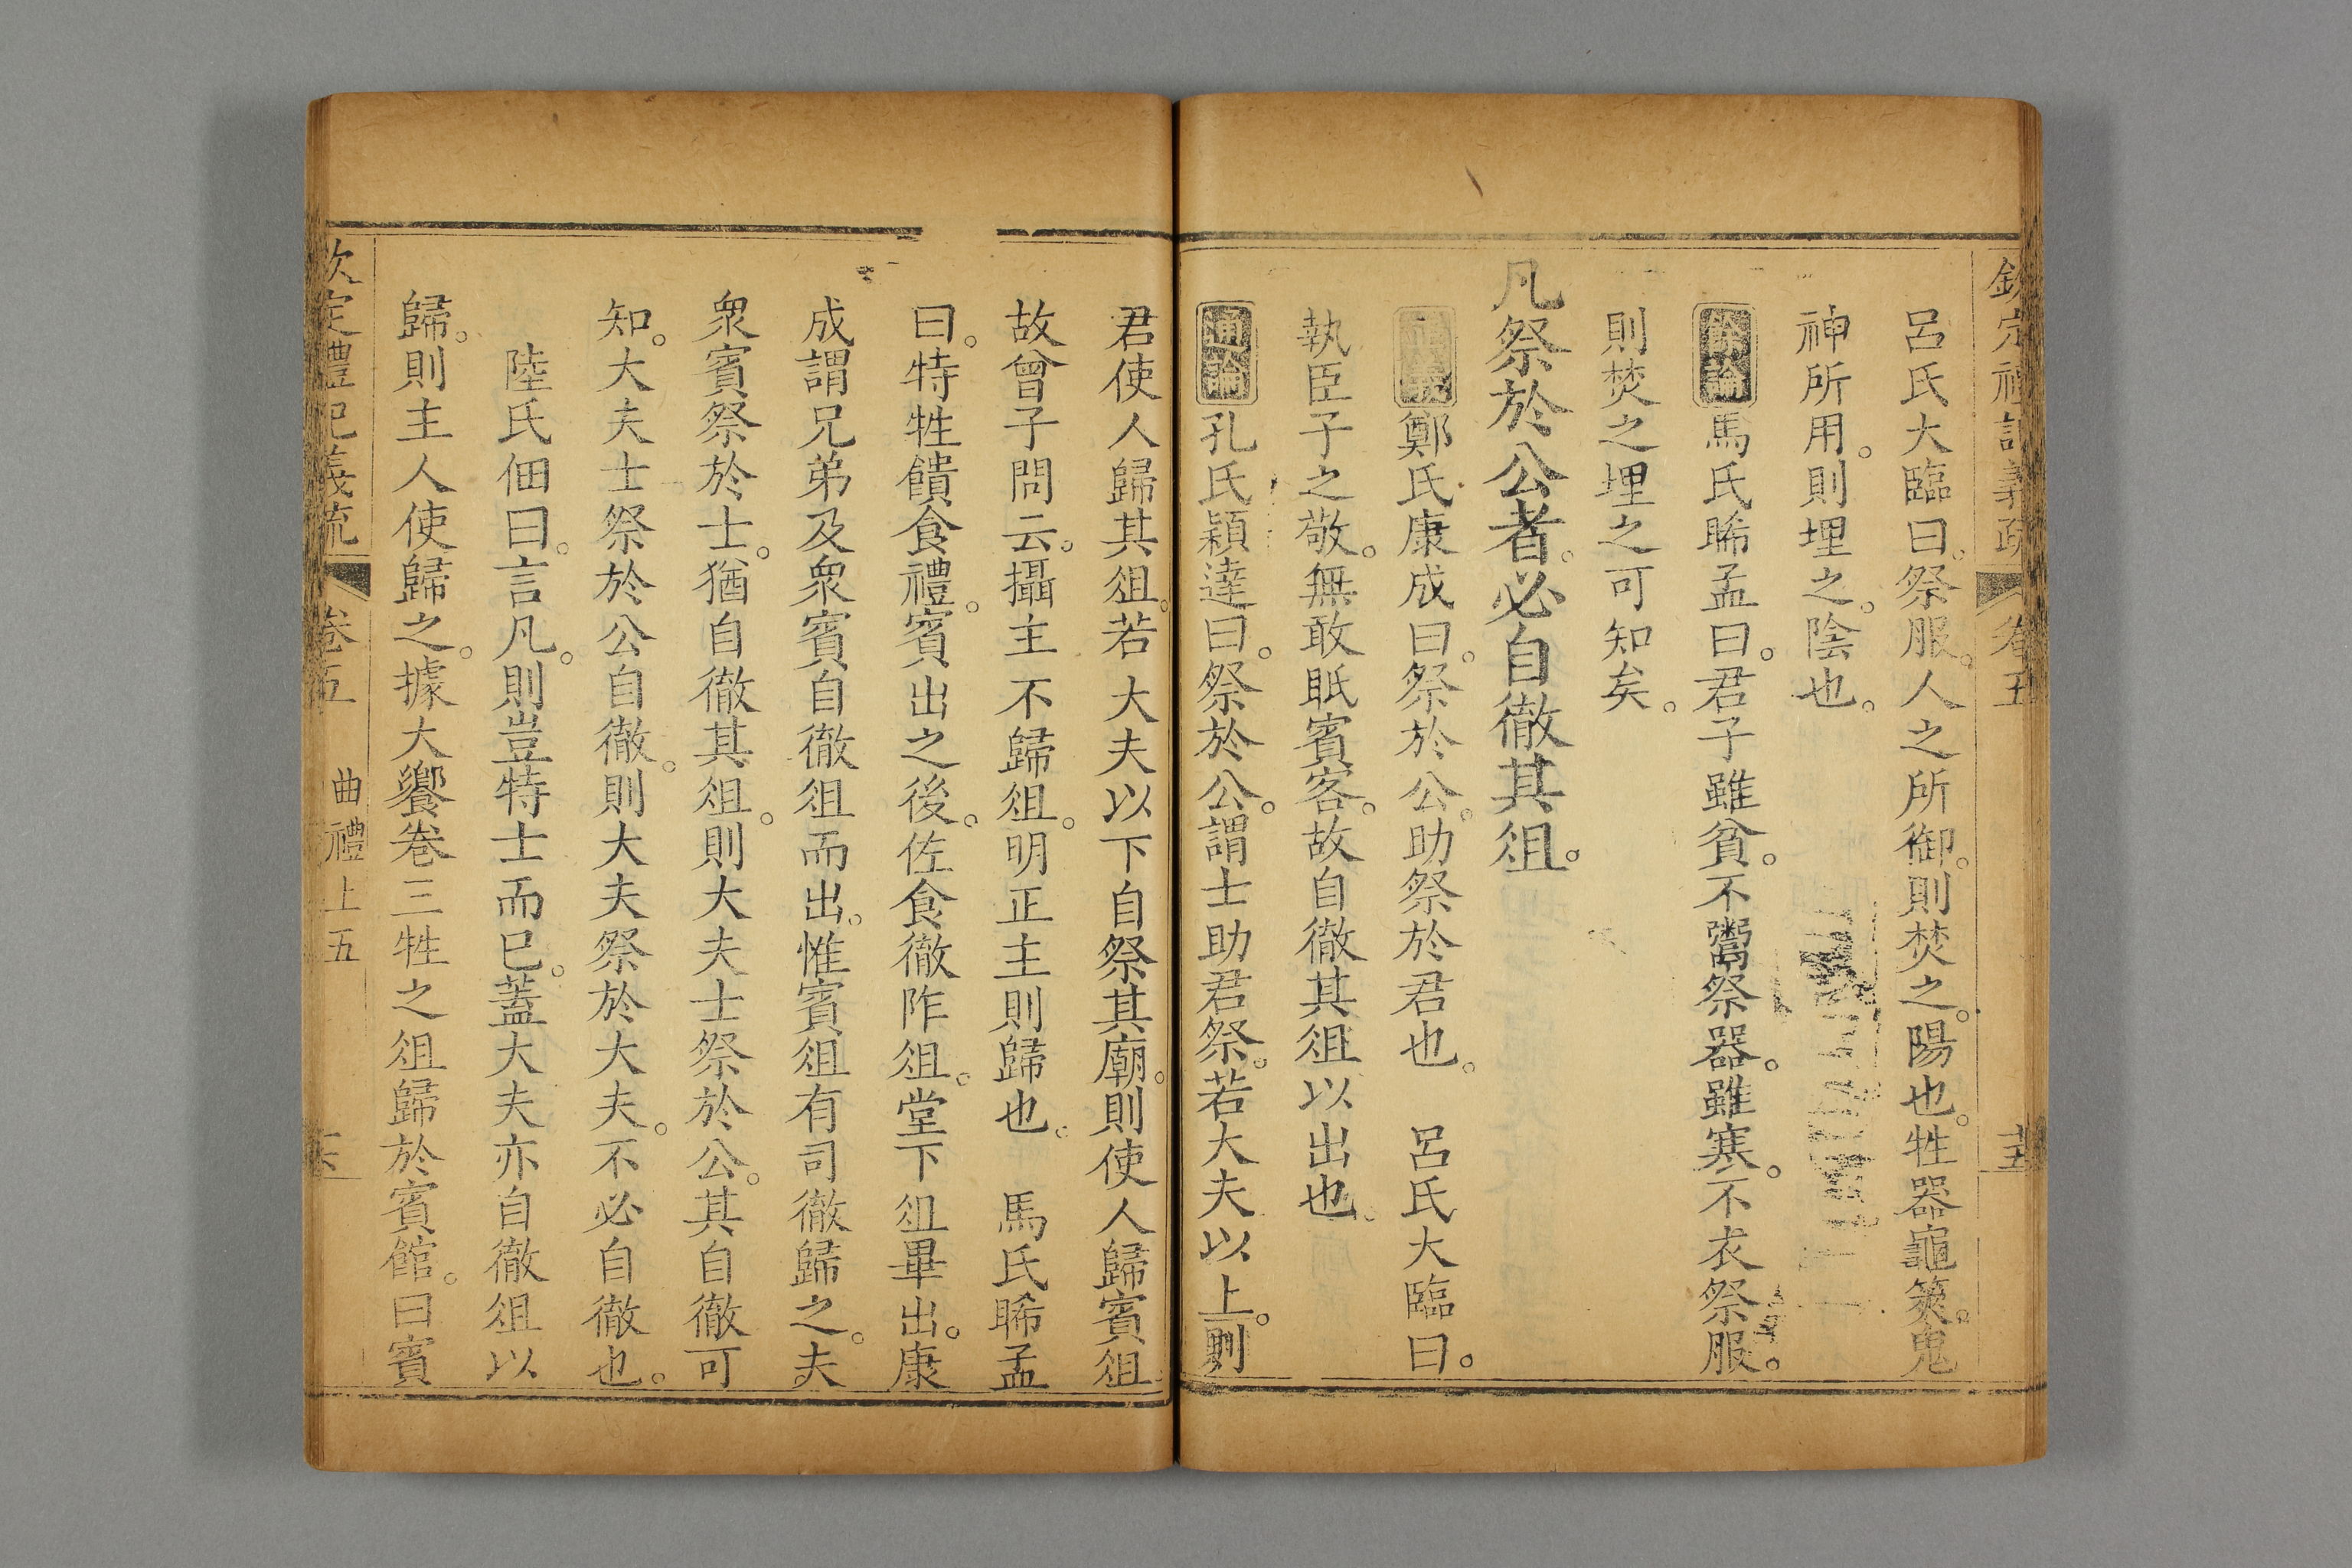 欽定禮記義疏 卷五 十五
呂氏大臨曰。祭服。人之所御。則焚之。陽也。牲器龜筴。鬼
神所用。則埋之。陰也。
餘論馬氏睎孟曰。君子雖貧。不鬻祭器。雖寒。不衣祭服。
則焚之埋之可知矣。
凡祭於公者。必自徹其俎。
正義鄭氏康成曰。祭於公。助祭於君也。 呂氏大臨曰。
執臣子之敬。無敢眡賓客。故自徹其俎以出也。
通論孔氏穎達曰。祭於公。謂士助君祭。若大夫以上。則
君使人歸其俎。若大夫以下自祭其廟。則使人歸賓俎
故曾子問云。攝主不歸俎。明正主則歸也。 馬氏睎孟
曰。特牲饋食禮。賓出之後。佐食徹阼俎。堂下俎畢出。康
成謂兄弟及衆賓自徹俎而出。惟賓俎有司徹歸之。夫
衆賓祭於士。猶自徹其俎。則大夫士祭於公。其自徹可
知。大夫士祭於公自徹。則大夫祭於大夫。不必自徹也。
陸氏佃曰。言凡。則豈特士而已。蓋大夫亦自徹俎以
歸。則主人使歸之。據大饗卷三牲之俎歸於賓館。曰賓
欽定禮記義疏 卷五 曲禮上五